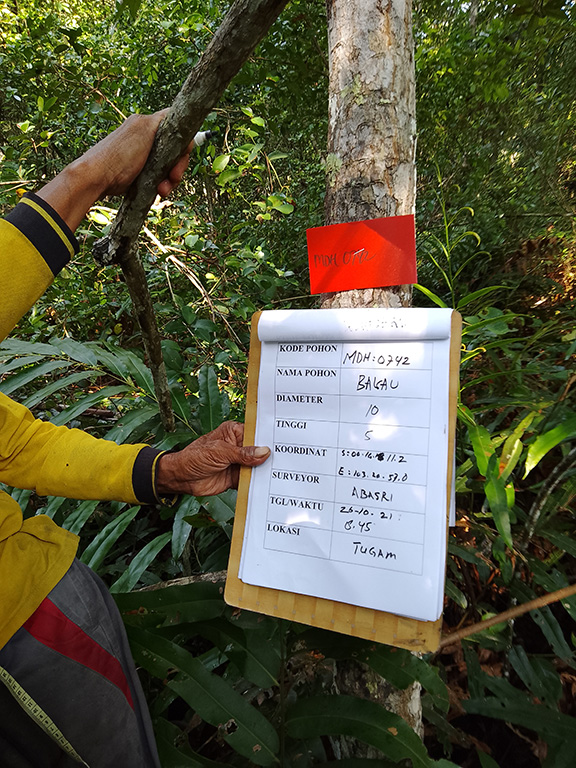 MDH
KODE POHON MDH:0742
NAMA POHON BAKAU
DIAMETER 10
TINGGI 5
KOORDINAT S:00.16. 11.2
E:103.20.57.0
SURVEYOR ABASRI
TGL/WAKTU 26-10-21:
8.45
LOKASI TUGAM